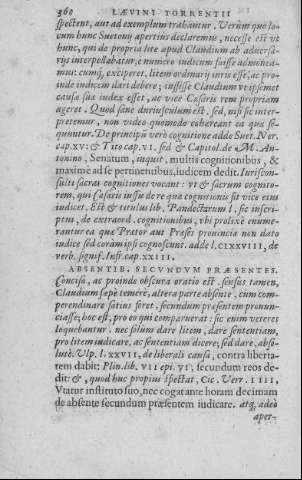 360 LAEVINI TORRENTII
spectent, aut ad exemplum trahantur. Verùm quo lo-
cum hunc Suetonij apertiùs declaremus, necesse est vt
hunc, qui de propria lite apud Claudium ab aduersa-
rijs interpellabatur, è numero iudicum fuisse admonea-
mus: cumq́, exciperet, litem ordinarij iuris esse, ac pro-
inde iudicem dari debere; iussisse Claudium vt ipsemet
causæ suæ iudex esset, ac vice Cæsaris rem propriam
ageret. Quod sanè duriusculum est. sed, nisi sic inter-
pretemur, non video quomodo cohæreant ea quæ se-
quuntur. De principū verò cognitione adde Suet. Ner.
cap. XV: & Tito cap. VI. sed & Capitol. de M. An-
tonino, Senatum, inquit, multis cognitionibus, &
maximè ad se pertinentibus, iudicem dedit. Iuriscon-
sulti sacras cognitiones vocant: vt & sacrum cognito-
rem, qui Cæsaris iussu de re qua cognitionis sit vice eius
iudicet. Est & titulus lib. Pandectarum l. sic inscri-
ptus, de extraord. cognitionibus, vbi prolixè enume-
rantur ea quæ Prætor aut Præses prouincia non dato
iudice sed coram ipsi cognoscunt. adde l. CLXXVIII, de
verb. signif. Infr. cap. XXIII.
ABSENTIB. SECVNDVM PRÆSENTES.
Concisa, ac proinde obscura oratio est. sensus tamen,
Claudium sæpè temerè, altera parte absente, cùm com-
perendinare satius foret, secundùm præsentem pronun-
ciasse; hoc est, pro eo qui comparuerat: sic enim veteres
loquebantur. nec solùm dare litem, dare sententiam,
pro litem iudicare, ac sententiam dicere; sed dare, abso-
lutè. Vlp. l. XXVII, de liberali causa, contra liberta-
tem dabit: Plin. lib. VII epi. VI, secundum reos de-
dit: &, quod huc propiùs spectat, Cic. Verr. IIII,
Vtatur instituto suo, nec cogat ante horam decimam
de absente secundum præsentem iudicare. atq́, adeò
aper-